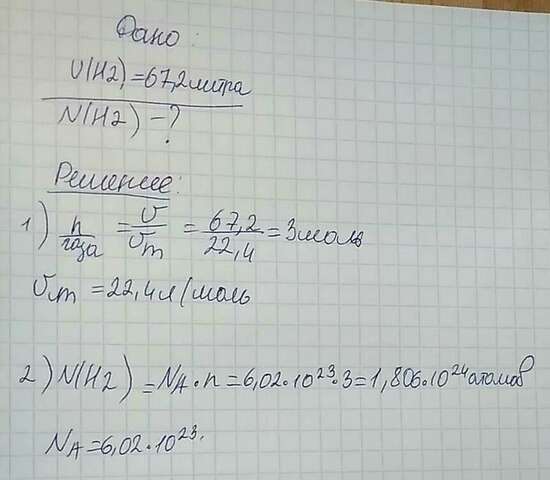 Дано:
U(H2) = 67,2 литра
N(H2) - ?
Решение:
1) n/газа = υ/υm = 67,2/22,4 = 3 моль
υm = 22,4 л/моль
2) N(H2) = NA · n = 6,02·10²³·3 = 1,806·10²⁴ атомов
NA = 6,02·10²³.